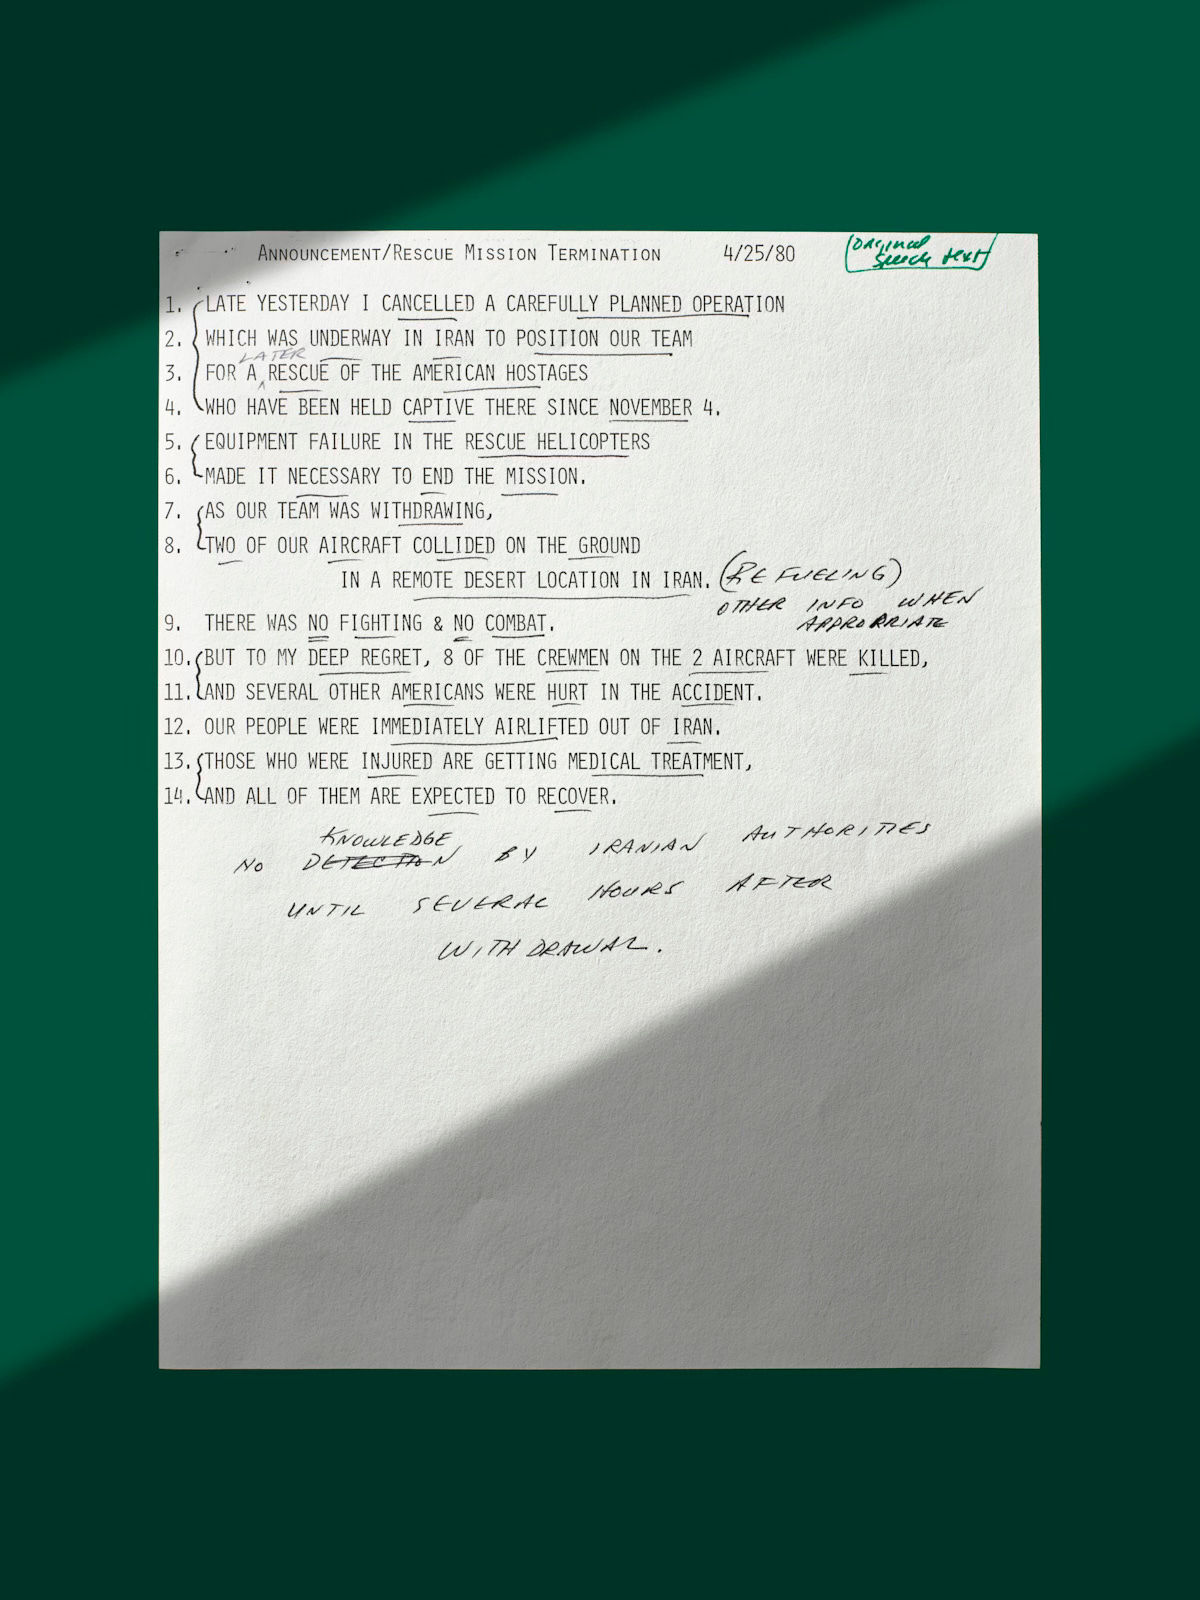 Announcement/Rescue Mission Termination 4/25/80 Original
speech text
1. LATE YESTERDAY I CANCELLED A CAREFULLY PLANNED OPERATION
2. WHICH WAS UNDERWAY IN IRAN TO POSITION OUR TEAM
LATER
3. FOR A RESCUE OF THE AMERICAN HOSTAGES
4. WHO HAVE BEEN HELD CAPTIVE THERE SINCE NOVEMBER 4.
5. EQUIPMENT FAILURE IN THE RESCUE HELICOPTERS
6. MADE IT NECESSARY TO END THE MISSION.
7. AS OUR TEAM WAS WITHDRAWING,
8. TWO OF OUR AIRCRAFT COLLIDED ON THE GROUND
IN A REMOTE DESERT LOCATION IN IRAN. (REFUELING)
OTHER INFO WHEN
APPROPRIATE
9. THERE WAS NO FIGHTING & NO COMBAT.
10. BUT TO MY DEEP REGRET, 8 OF THE CREWMEN ON THE 2 AIRCRAFT WERE KILLED,
11. AND SEVERAL OTHER AMERICANS WERE HURT IN THE ACCIDENT.
12. OUR PEOPLE WERE IMMEDIATELY AIRLIFTED OUT OF IRAN.
13. THOSE WHO WERE INJURED ARE GETTING MEDICAL TREATMENT,
14. AND ALL OF THEM ARE EXPECTED TO RECOVER.
KNOWLEDGE
NO DETECTION BY IRANIAN AUTHORITIES
UNTIL SEVERAL HOURS AFTER
WITHDRAWAL.